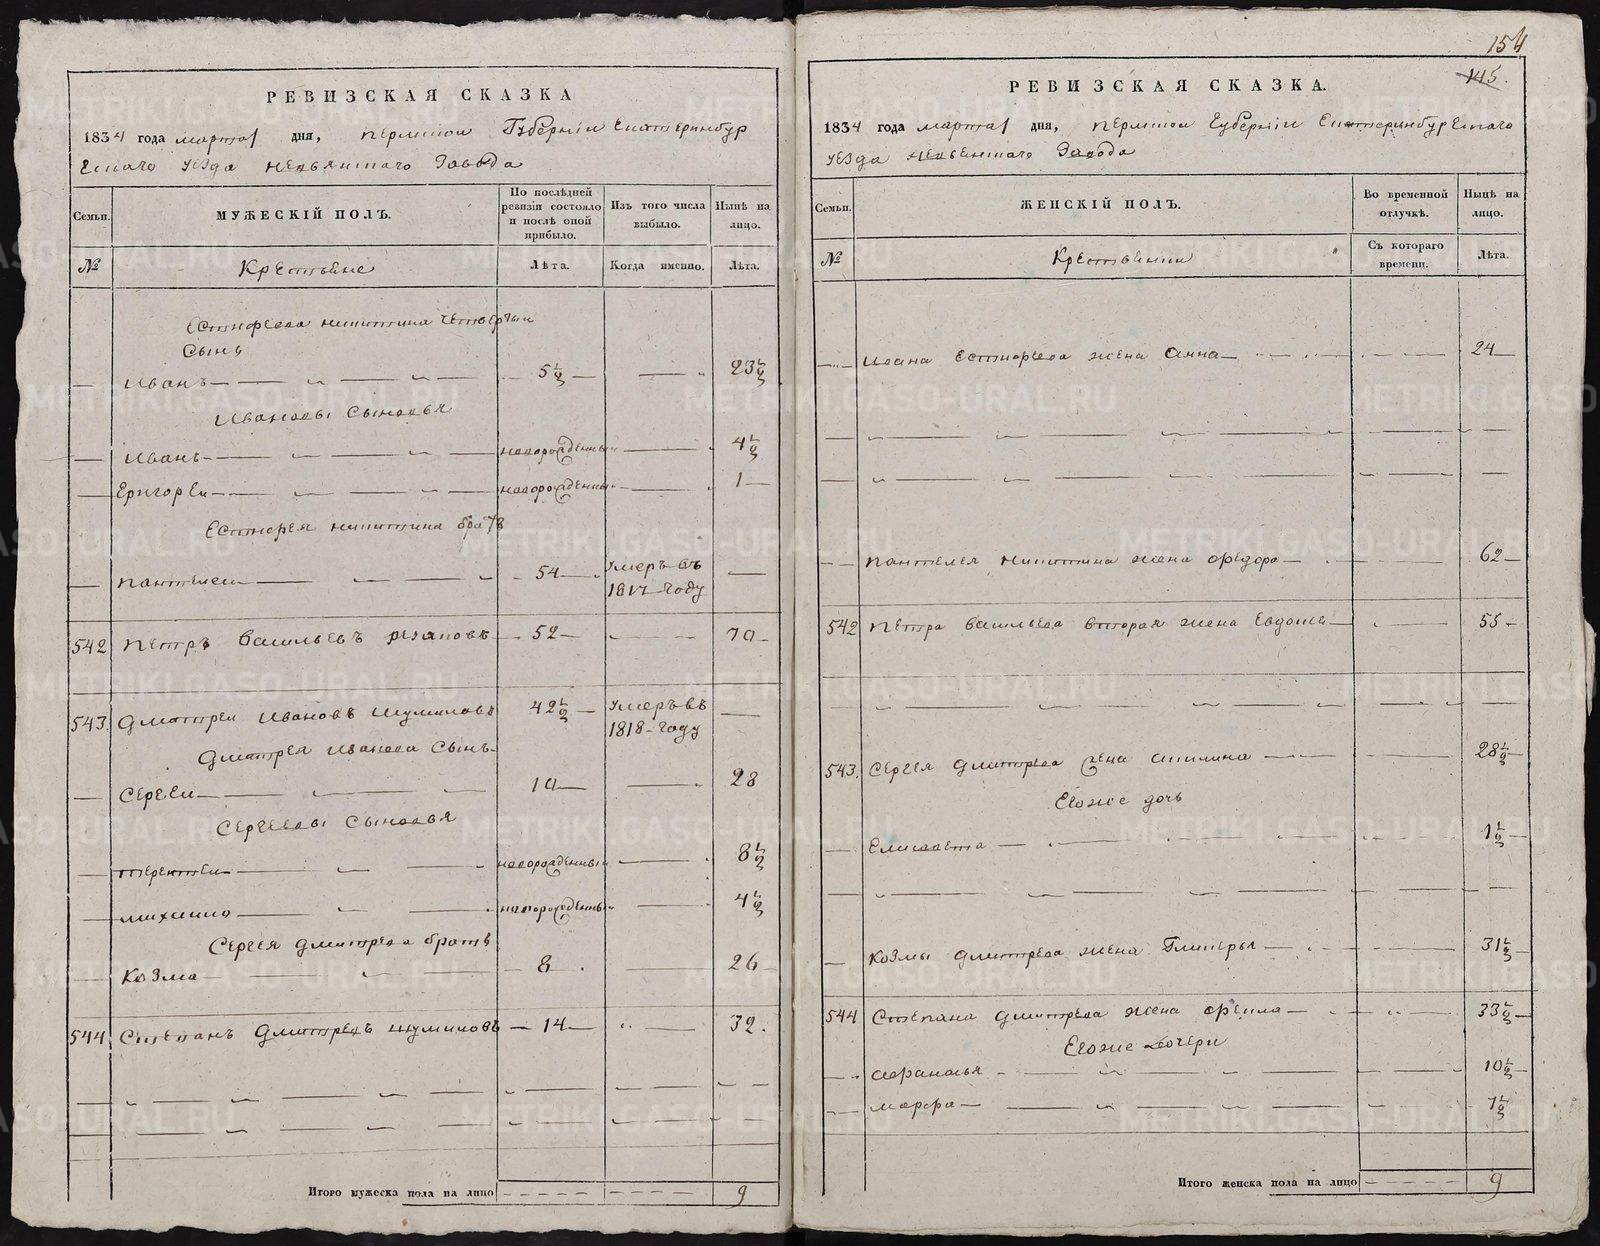 РЕВИЗСКАЯ СКАЗКА
1834 года марта 1 дня, Пермской Губернiи Екатеринбур
скаго уезда невьянскаго завода
Семьи.
МУЖЕСКIЙ ПОЛЪ.
По послѣдней ревизiи состояло и послѣ оной прибыло.
Изъ того числа выбыло.
Нынѣ на лицо.
№
Крестьяне
Лѣта.
Когда именно.
Лѣта.
никитина четвертыи
сынъ
Иванъ 5½ 23½
Ивановы сыновья
Иванъ новорожденный 4½
Григореи новорожденный 1
никитина братъ
Пантелеи 54 умеръ въ 1817 году
542 Петръ Васильевъ 52 70
543 Дмитреи Ивановъ Шумиловъ 42½ умеръ въ 1818 году
Дмитрея Иванова сынъ
Сергеи 10 28
Сергеевы сыновья
Терентеи новорожденный 8½
Михаило новорожденный 4½
Сергея Дмитрева братъ
Козма 8 26
544 Степанъ Дмитревъ Шумиловъ 14 32
Итого мужеска пола на лицо 9
154
145
РЕВИЗСКАЯ СКАЗКА.
1834 года марта 1 дня, Пермской Губернiи Екатеринбургскаго
уезда невьянскаго завода
Семьи.
ЖЕНСКIЙ ПОЛЪ.
Во временной отлучкѣ.
Нынѣ на лицо.
№
Крестьянки
Съ котораго времени.
Лѣта.
Ивана жена Анна 24
Пантелея никитина жена Федора 62
542 Петра Васильева вторая жена Евдокья 55
543 Сергея Дмитрева жена Акилина 28½
Егоже дочь
Елисавета 1½
Козмы Дмитрева жена Гликерья 31½
544 Степана Дмитрева жена Фекла 33½
Егоже дочери
Афанасья 10½
Марфа 7½
Итого женска пола на лицо 9
METRIKI.GASO-URAL.RU